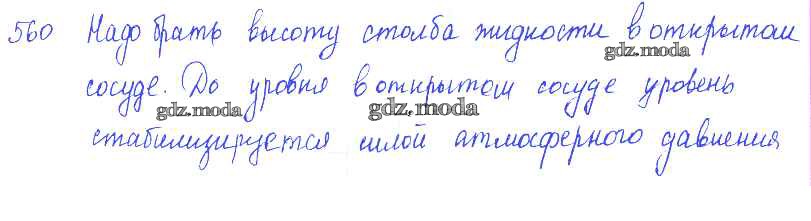 560 Надо брать высоту столба жидкости в открытом
gdz.moda
сосуде. До уровня в открытом сосуде уровень
gdz.moda gdz.moda
стабилизируется силой атмосферного давления